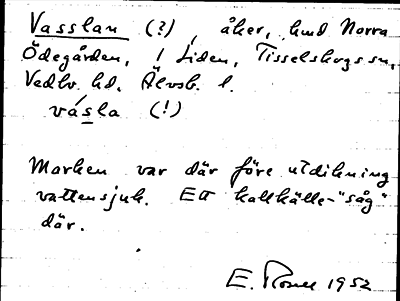 Vasslan (?), åker, hmd Norra
Ödegården, i Liden, Tisselskogs sn,
Vedbo hd. Älvsb. l.
vásla (!)
Marken var där före utdikning
vattensjuk. Ett kallkälle-"såg"
där.
E. 1952